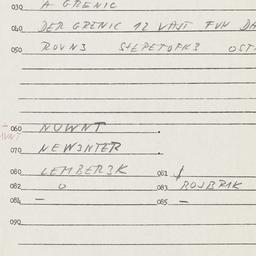 030 A GRENIC
040 DER GRENIC 12 VAJT FUN DA
050 ROVN3 SHEPETOFK3 OST
060 NUWNT .
070 NEW3NTER .
080 LEMBER3K 081 /
082 0 083 BOJBR1K
084 – 085 –
090